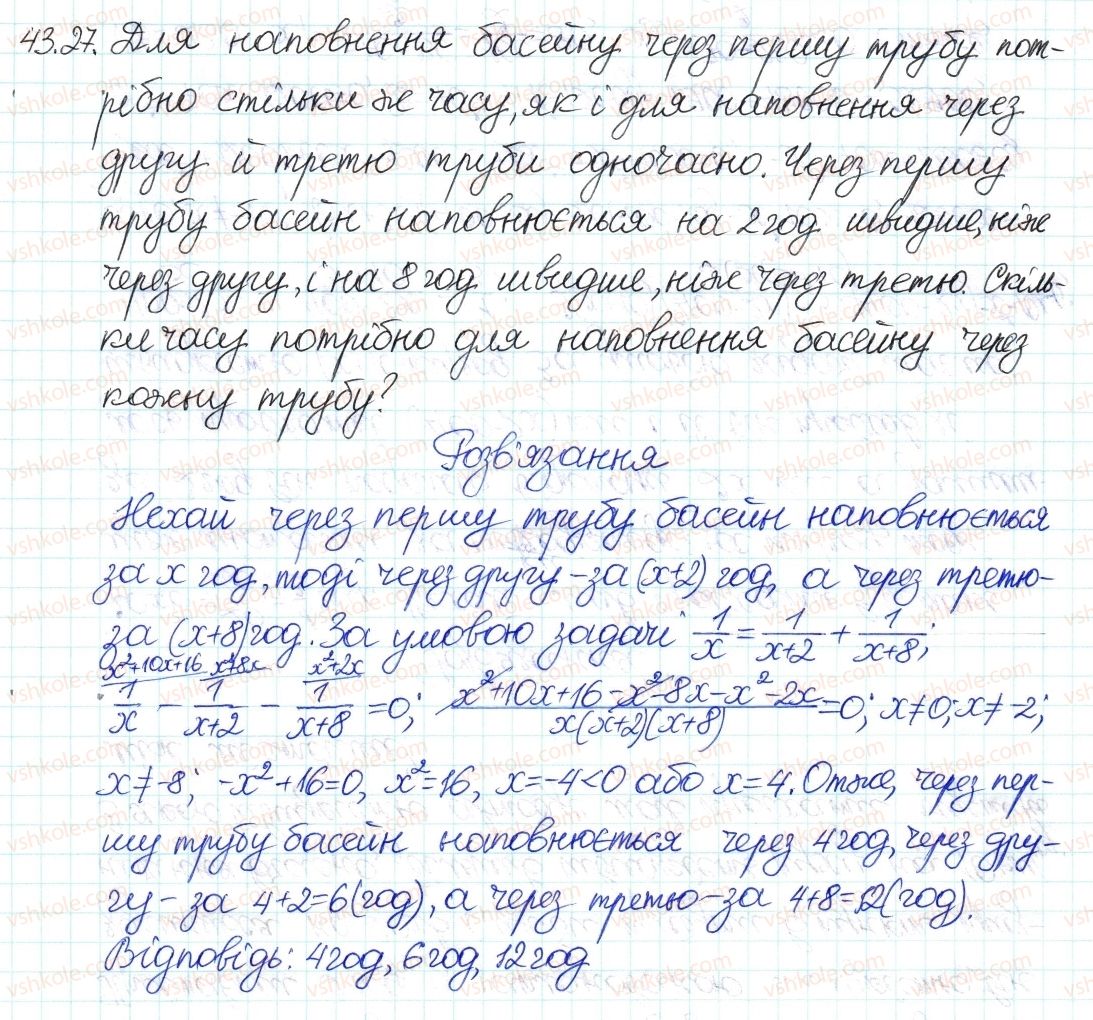 43.27. Для наповнення басейну через першу трубу пот-
рібно стільки ж часу, як і для наповнення через
другу й третю труби одночасно. Через першу
трубу басейн наповнюється на 2 год швидше, ніж
через другу, і на 8 год швидше, ніж через третю. Скіль-
ки часу потрібно для наповнення басейну через
кожну трубу?
Розв'язання
Нехай через першу трубу басейн наповнюється
за x год, тоді через другу – за (x+2) год, а через третю –
за (x+8) год. За умовою задачі 1/x = 1/(x+2) + 1/(x+8);
x²+10x+16 x²+8x x²+2x
1/x − 1/(x+2) − 1/(x+8) = 0; (x²+10x+16−x²−8x−x²−2x)/(x(x+2)(x+8)) = 0; x≠0; x≠-2;
x≠-8; -x²+16=0, x²=16, x=-4<0 або x=4. Отже, через пер-
шу трубу басейн наповнюється через 4 год, через дру-
гу – за 4+2=6(год), а через третю – за 4+8=12(год).
Відповідь: 4 год, 6 год, 12 год